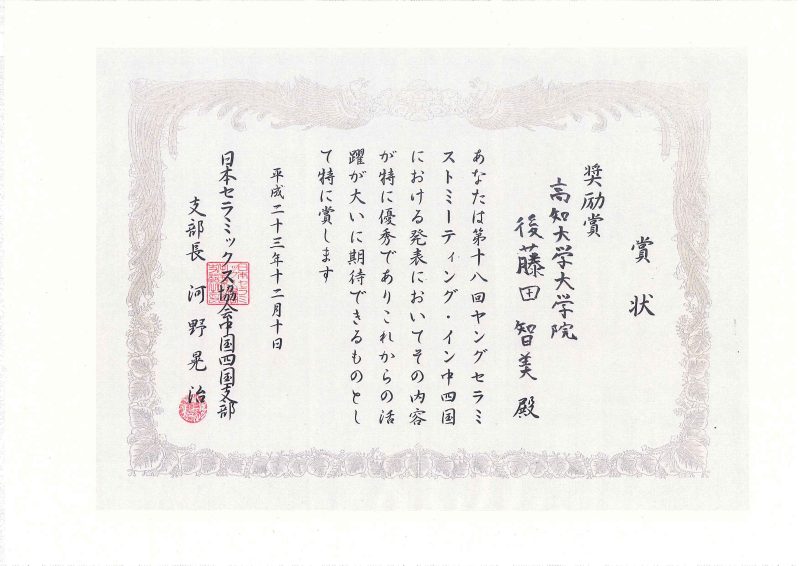 賞状
奨励賞
高知大学大学院
後藤田智美殿
あなたは第十八回ヤングセラミ
ストミーティング・イン中四国
における発表においてその内容
が特に優秀でありこれからの活
躍が大いに期待できるものとし
て特に賞します
平成二十三年十二月十日
日本セラミックス協会中国四国支部
支部長 河野晃治